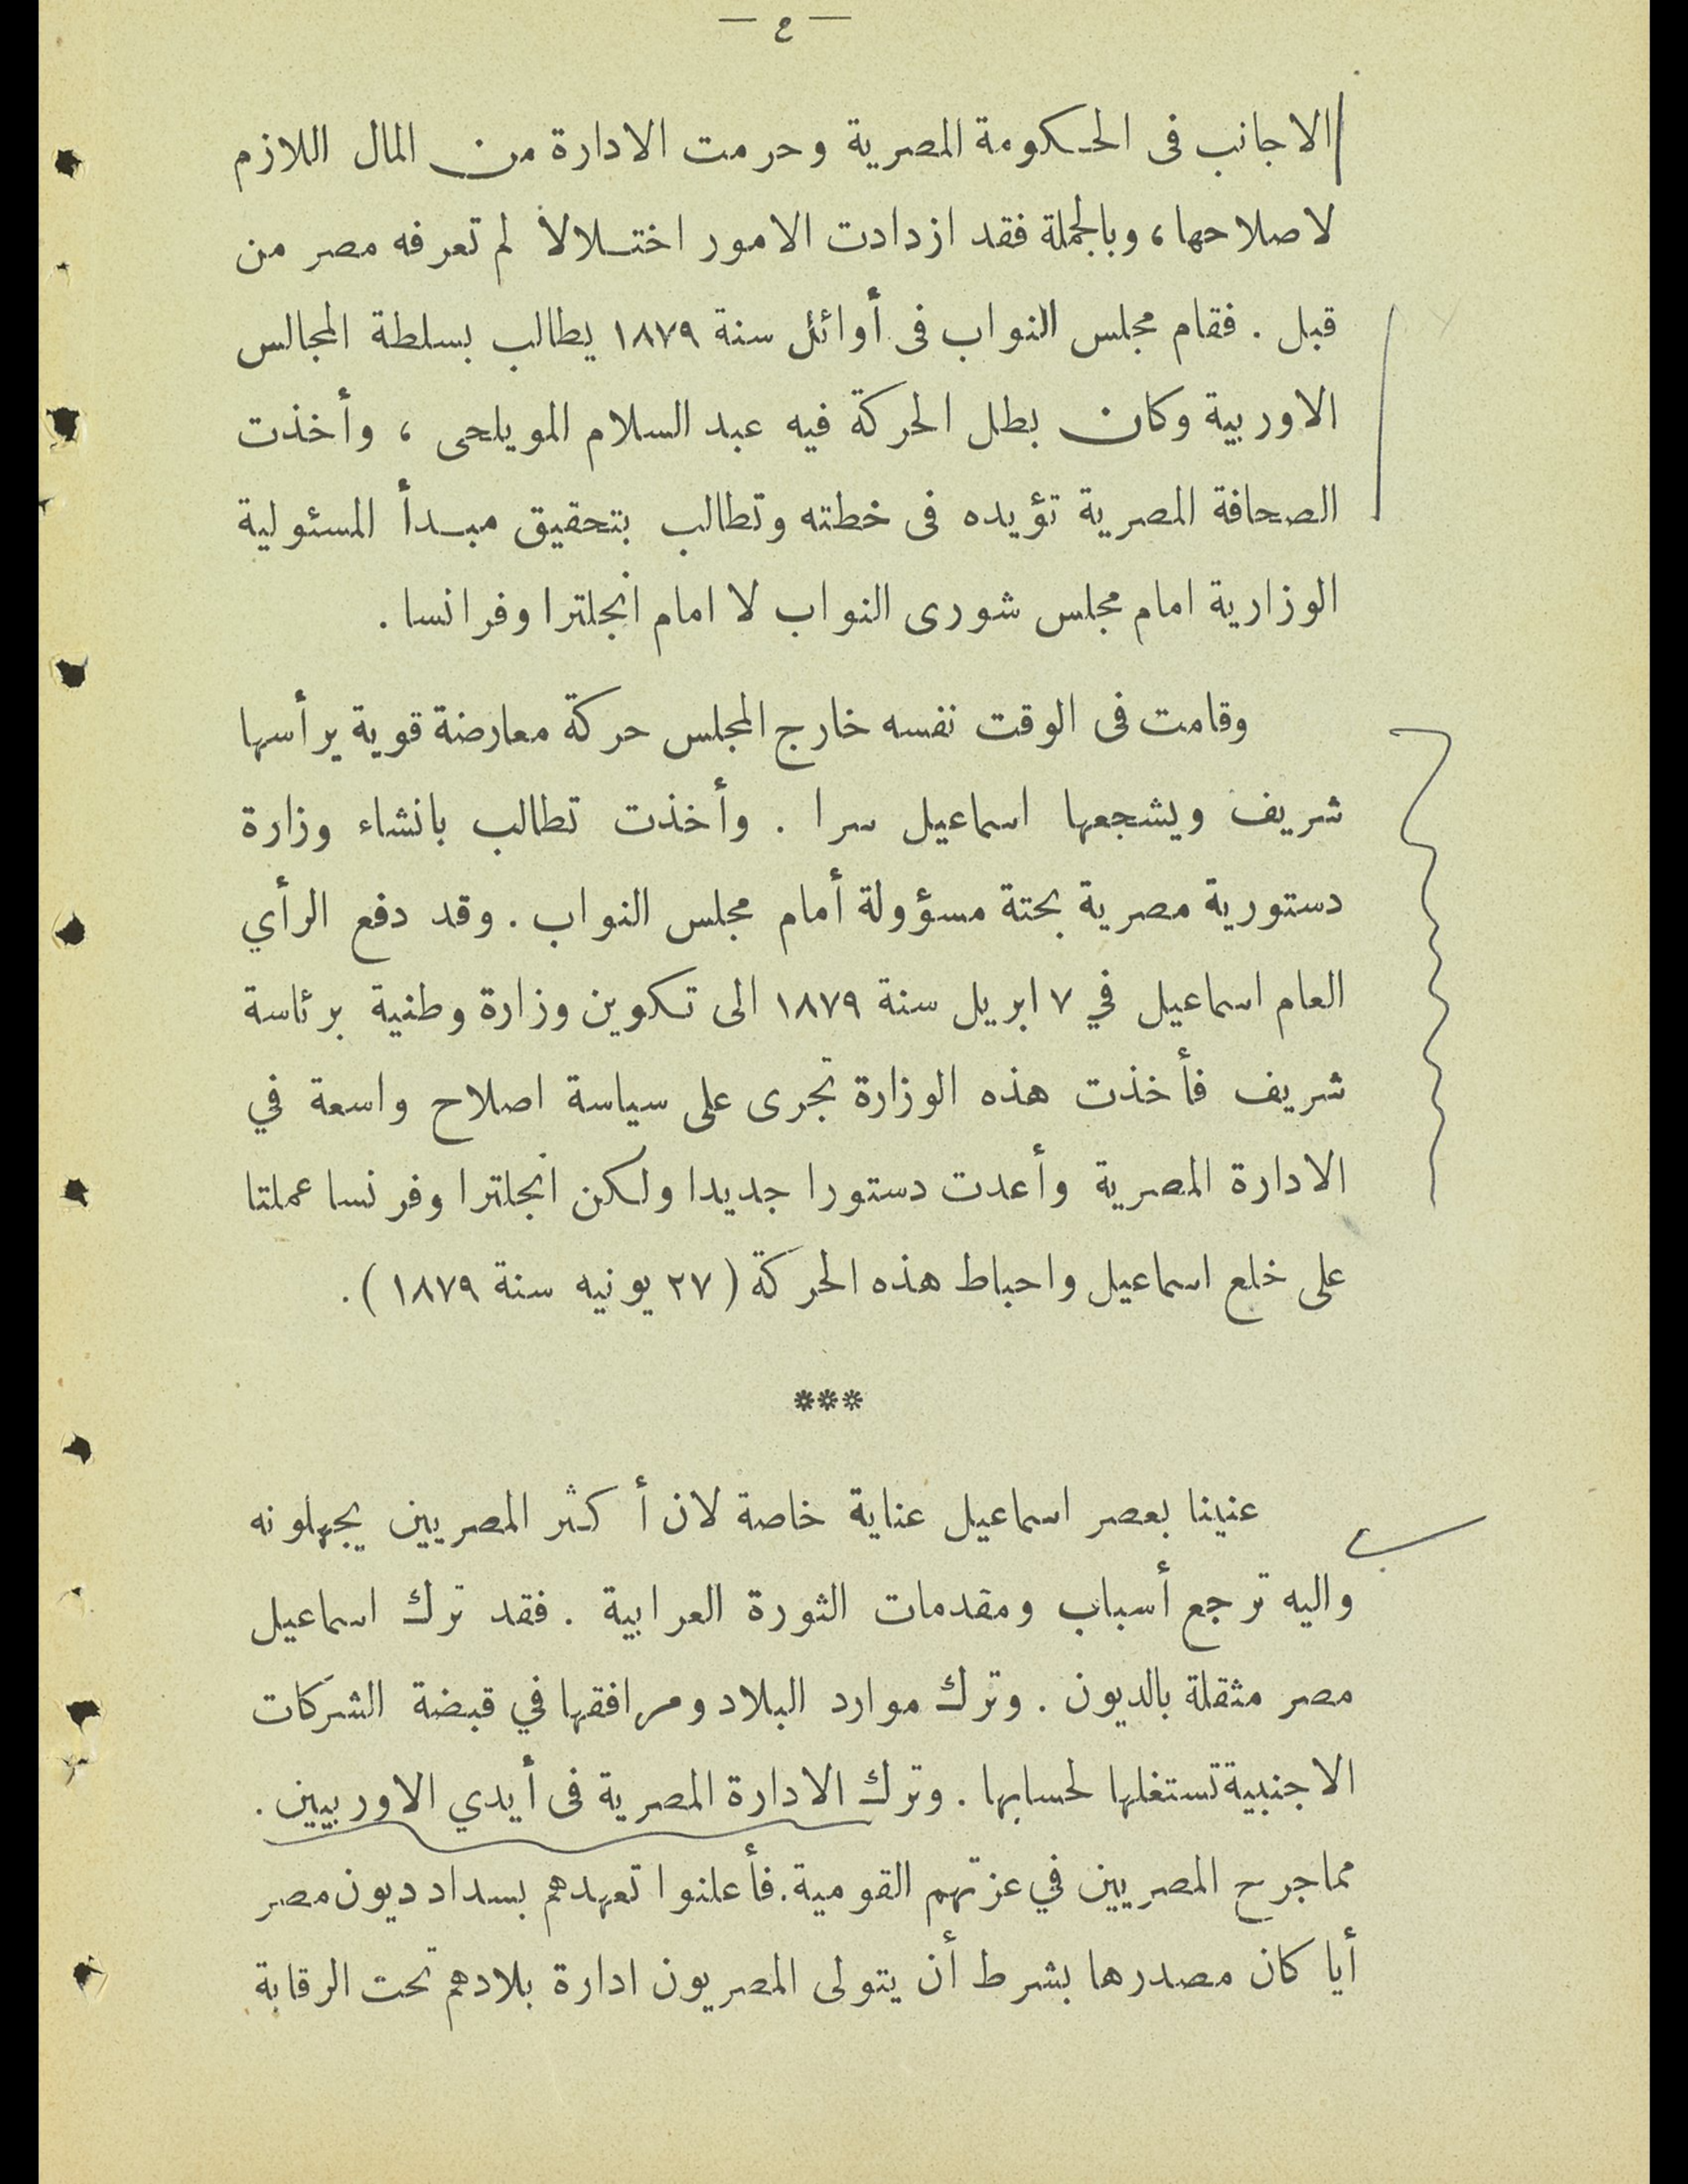 — ٤ —
الاجانب فى الحكومة المصرية وحرمت الادارة من المال اللازم
لاصلاحها، وبالجملة فقد ازدادت الامور اختلالا لم تعرفه مصر من
قبل . فقام مجلس النواب فى أوائل سنة ١٨٧٩ يطالب بسلطة المجالس
الاوربية وكان بطل الحركة فيه عبد السلام المويلحى ، وأخذت
الصحافة المصرية تؤيده فى خطته وتطالب بتحقيق مبدأ المسئولية
الوزارية امام مجلس شورى النواب لا امام انجلترا وفرانسا .
وقامت فى الوقت نفسه خارج المجلس حركة معارضة قوية يرأسها
شريف ويشجعها اسماعيل سرا . وأخذت تطالب بانشاء وزارة
دستورية مصرية بحتة مسؤولة أمام مجلس النواب . وقد دفع الرأي
العام اسماعيل في ٧ ابريل سنة ١٨٧٩ الى تكوين وزارة وطنية برئاسة
شريف فأخذت هذه الوزارة تجرى على سياسة اصلاح واسعة في
الادارة المصرية وأعدت دستورا جديدا ولكن انجلترا وفرنسا عملتا
على خلع اسماعيل واحباط هذه الحركة (٢٧ يونيه سنة ١٨٧٩) .
***
عنينا بعصر اسماعيل عناية خاصة لان أكثر المصريين يجهلونه
واليه ترجع أسباب ومقدمات الثورة العرابية . فقد ترك اسماعيل
مصر مثقلة بالديون . وترك موارد البلاد ومرافقها في قبضة الشركات
الاجنبية تستغلها لحسابها . وترك الادارة المصرية فى أيدي الاوربيين .
مما جرح المصريين في عزتهم القومية. فأعلنوا تعهدهم بسداد ديون مصر
أيا كان مصدرها بشرط أن يتولى المصريون ادارة بلادهم تحت الرقابة